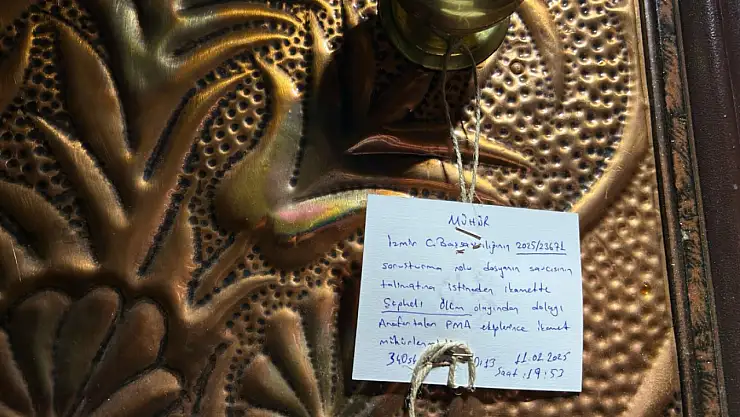 MÜHÜR
İzmir C.Başsavcılığının 2025/23671
soruşturma nolu dosyanın savcısının
talimatına istinaden ikamette
Şüpheli Ölüm olayından dolayı
Anafartalar PMA ekiplerince ikamet
11.01.2025
Saat :19:53